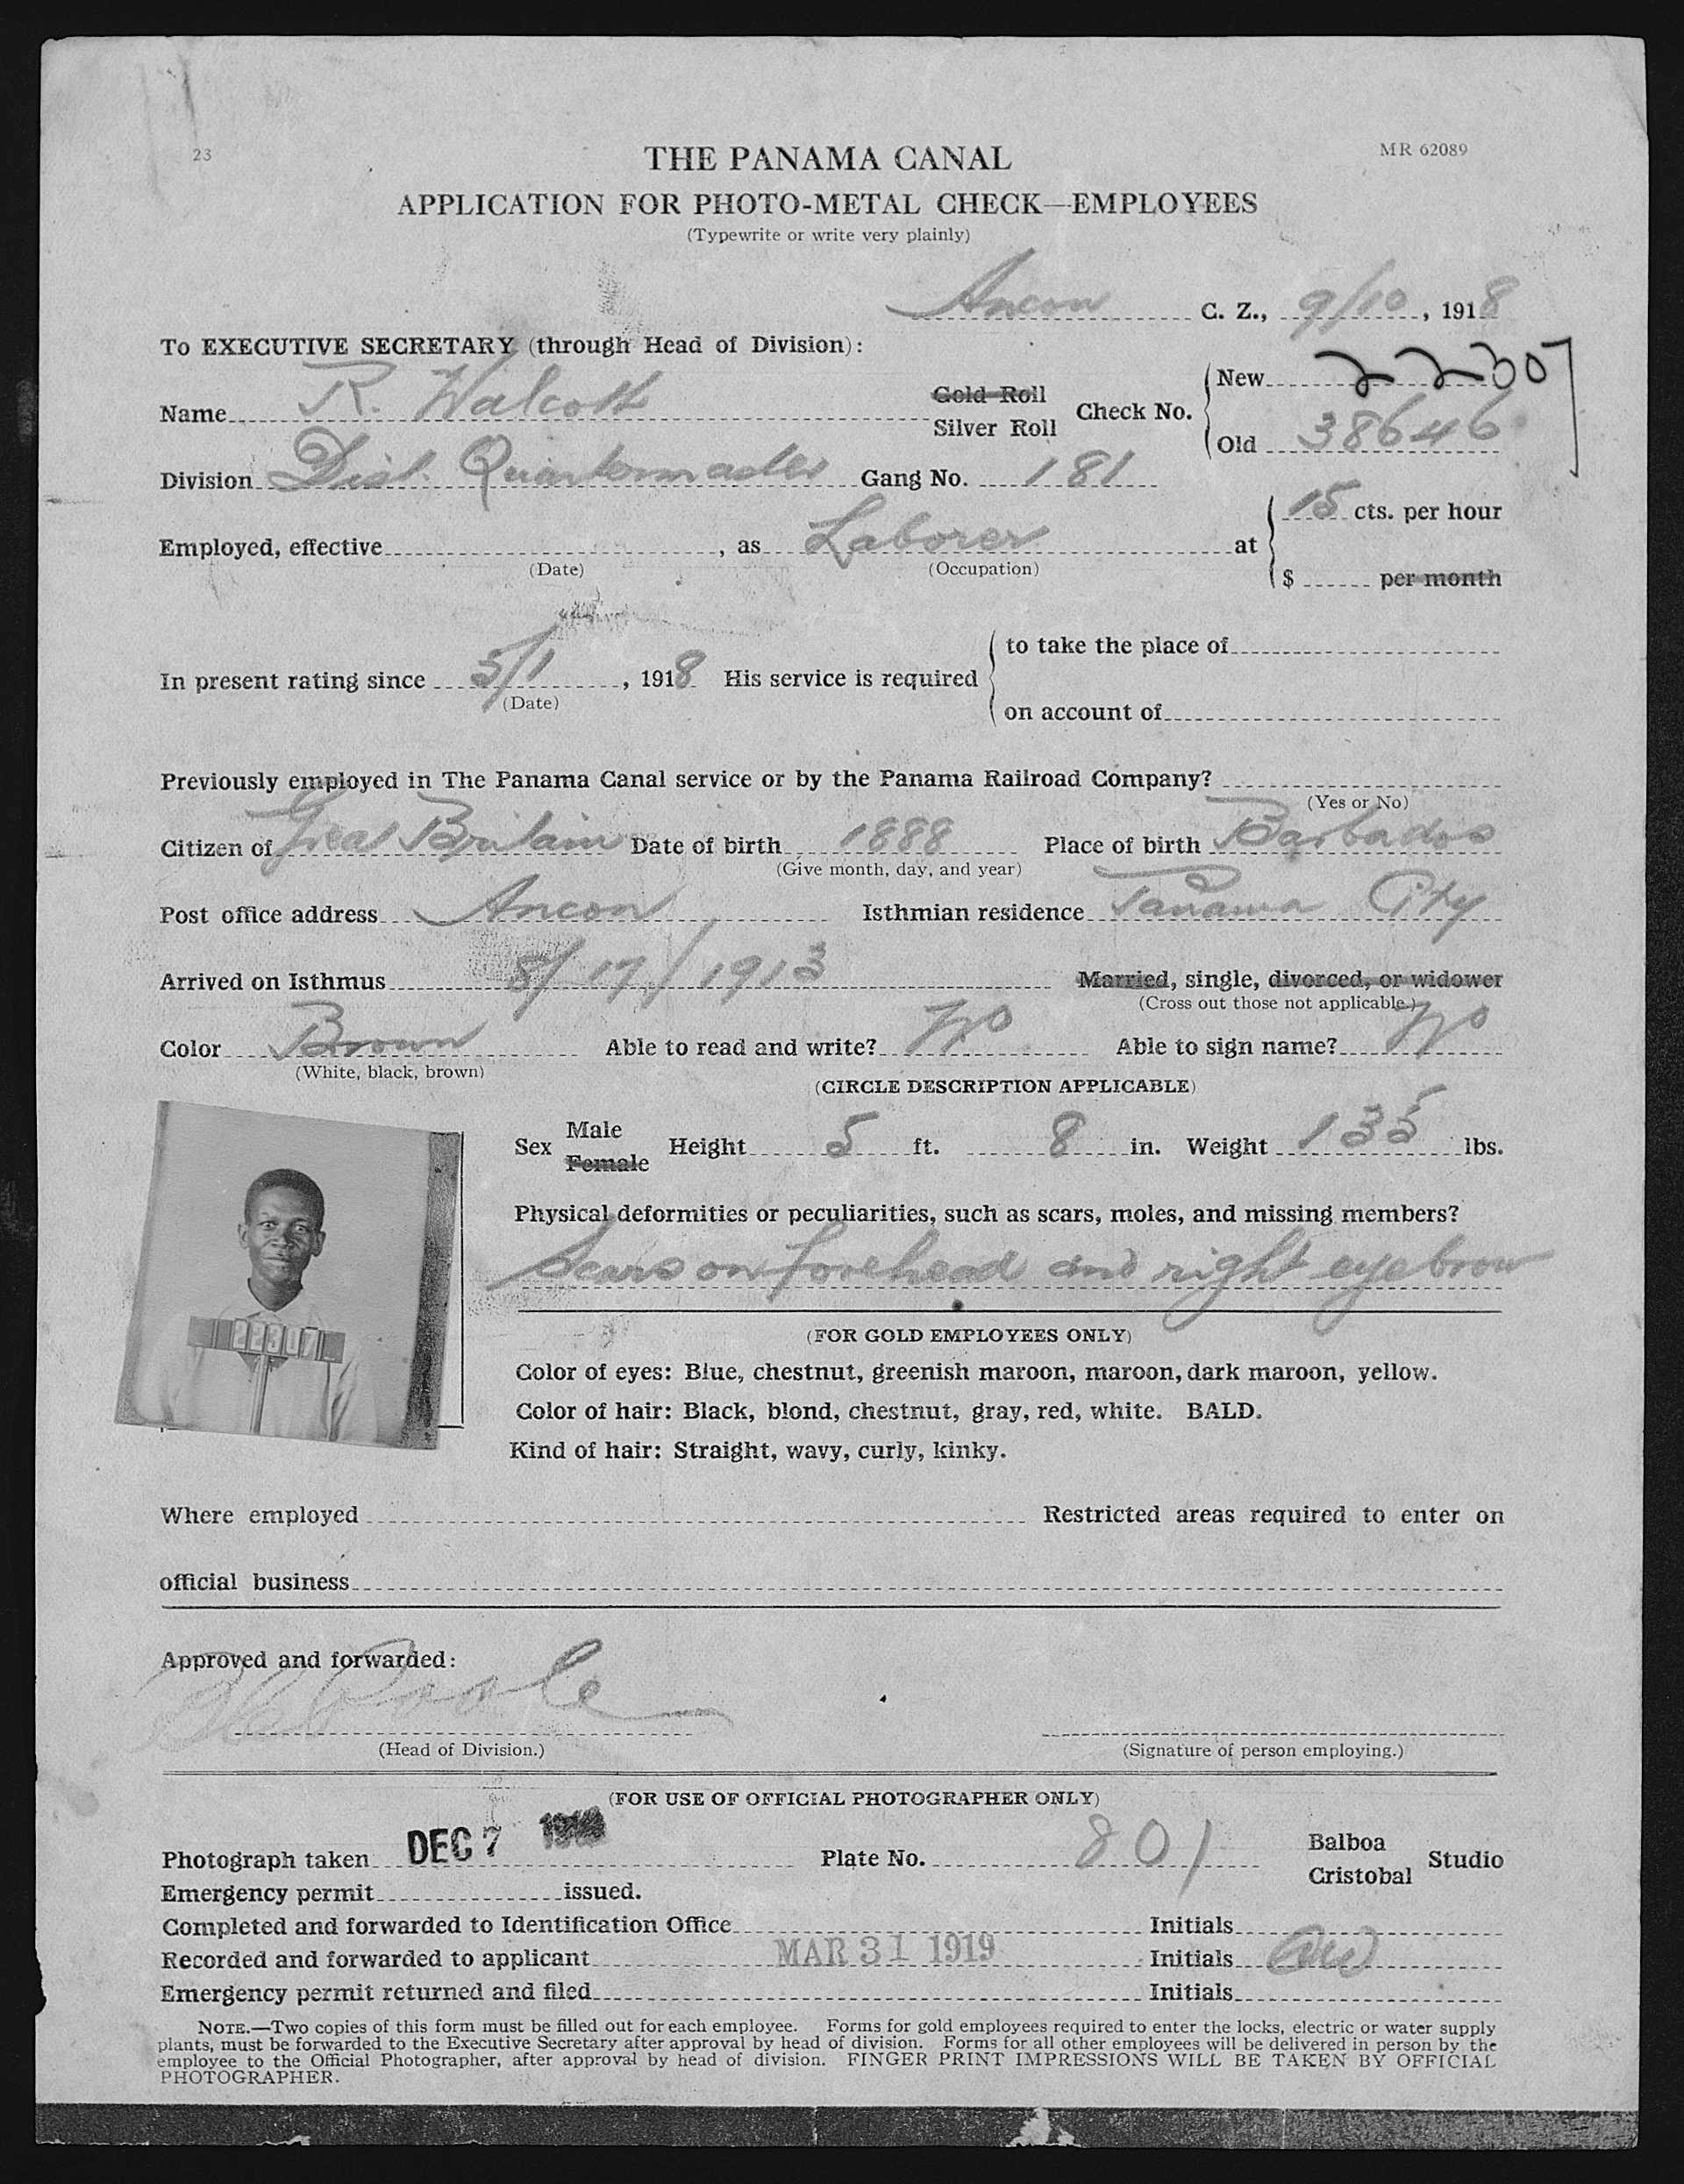 23
MR 62089
THE PANAMA CANAL
APPLICATION FOR PHOTO-METAL CHECK—EMPLOYEES
(Typewrite or write very plainly)
Ancon C. Z., 9/10, 1918
To EXECUTIVE SECRETARY (through Head of Division):
Name R. Walcott Gold Roll Silver Roll Check No. New 22307 Old 38646
Division Dist. Quartermaster Gang No. 181
Employed, effective , as Laborer at 15 cts. per hour
(Date) (Occupation) $ per month
In present rating since 5/1, 1918 His service is required to take the place of
(Date) on account of
Previously employed in The Panama Canal service or by the Panama Railroad Company?
(Yes or No)
Citizen of Great Britain Date of birth 1888 Place of birth Barbados
(Give month, day, and year)
Post office address Ancon Isthmian residence Panama City
Arrived on Isthmus 8/17/1913 Married, single, divorced, or widower
(Cross out those not applicable.)
Color Brown Able to read and write? No Able to sign name? No
(White, black, brown)
(CIRCLE DESCRIPTION APPLICABLE)
Sex Male Female Height 5 ft. 8 in. Weight 135 lbs.
Physical deformities or peculiarities, such as scars, moles, and missing members?
Scars on forehead and right eyebrow
(FOR GOLD EMPLOYEES ONLY)
Color of eyes: Blue, chestnut, greenish maroon, maroon, dark maroon, yellow.
Color of hair: Black, blond, chestnut, gray, red, white. BALD.
Kind of hair: Straight, wavy, curly, kinky.
Where employed Restricted areas required to enter on
official business
Approved and forwarded:
Poole
(Head of Division.) (Signature of person employing.)
(FOR USE OF OFFICIAL PHOTOGRAPHER ONLY)
Photograph taken DEC 7 Plate No. 801 Balboa Cristobal Studio
Emergency permit issued.
Completed and forwarded to Identification Office Initials
Recorded and forwarded to applicant MAR 31 1919 Initials
Emergency permit returned and filed Initials
NOTE.—Two copies of this form must be filled out for each employee. Forms for gold employees required to enter the locks, electric or water supply
plants, must be forwarded to the Executive Secretary after approval by head of division. Forms for all other employees will be delivered in person by the
employee to the Official Photographer, after approval by head of division. FINGER PRINT IMPRESSIONS WILL BE TAKEN BY OFFICIAL
PHOTOGRAPHER.